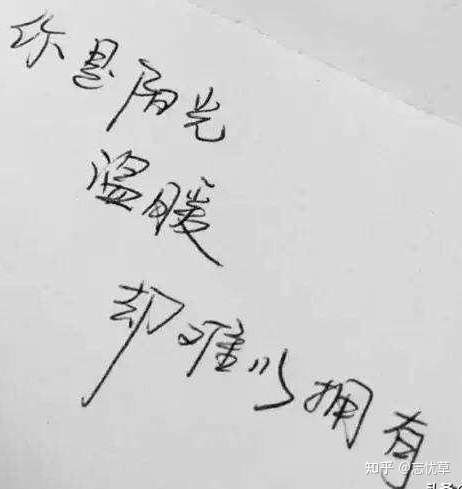 你是阳光
温暖
却难以拥有
知乎 @忘优草